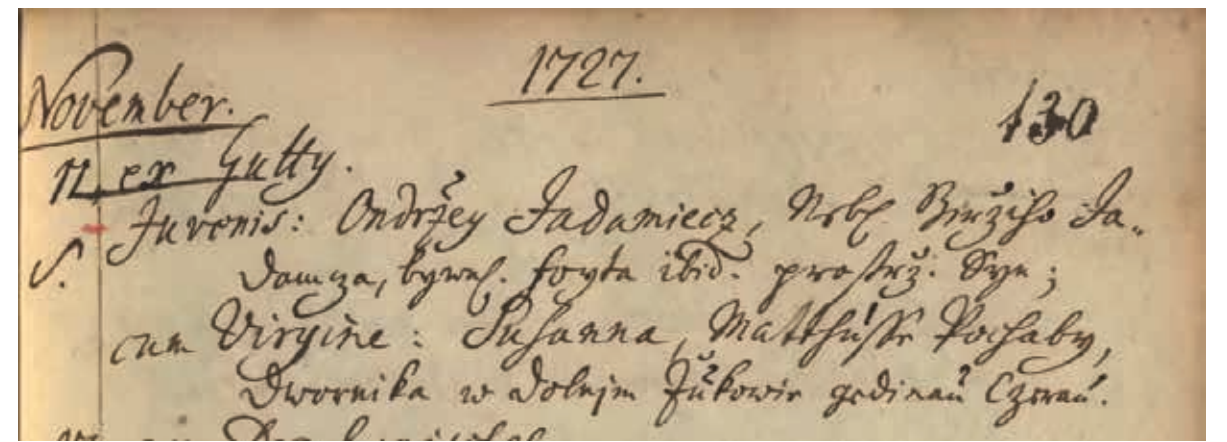 1727.
November.
130
11. ex Gutty.
Juvenis: Ondržey Jadamiecz, Nebl. Jiržiho Ja-
S. damcza, bywl. foyta ibid. prostrž. Syn;
cum Virgine: Susanna, Matthusse Pochaby,
Dwornika w Dolnjm Žukowie gedinau Czerau.
ex